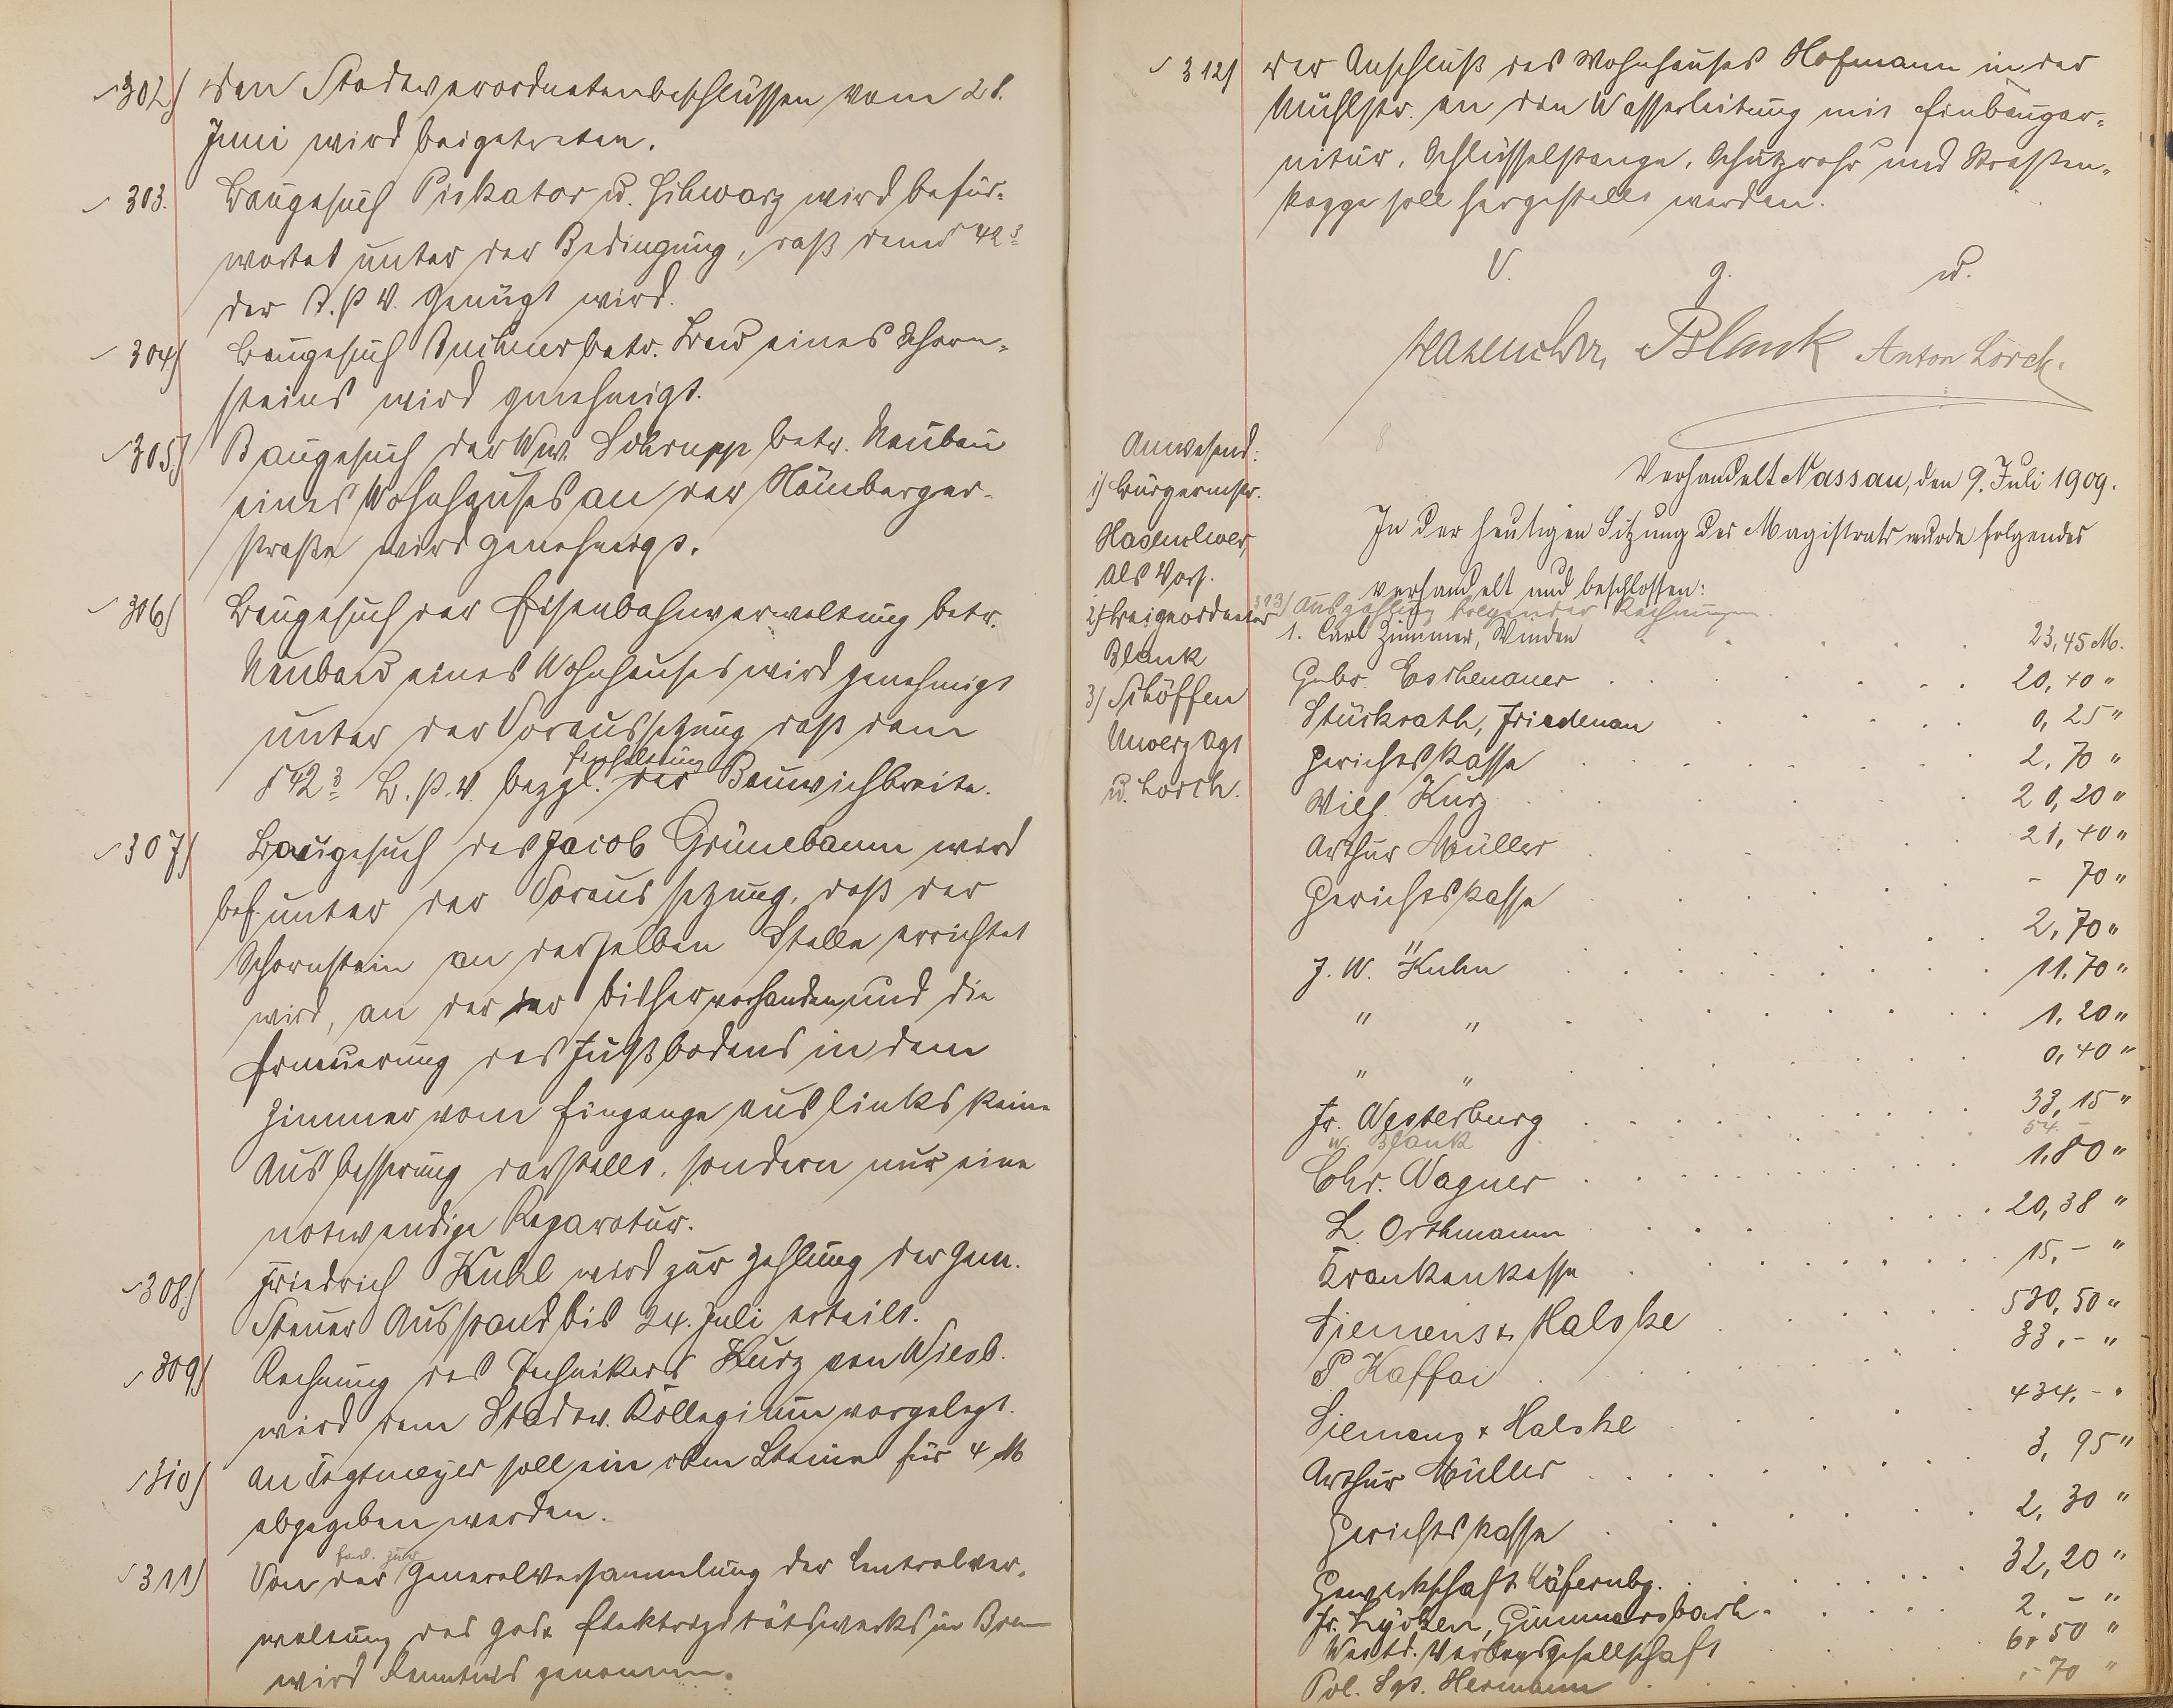 302) Den Stadtverordnetenbeschlüssen vom 28.
Juni wird beigetreten.
303. Baugesuch Piskator u. Schwarz wird befür-
wortet unter der Bedingung, daß dem § 42 3
der B.P.V. genügt wird.
304) Baugesuch Buchner betr. Bau eines Schorn-
steins wird genehmigt.
305) Baugesuch der Ww. Schrupp betr. Neubau
eines Wohnhauses an der Hömberger-
straße wird genehmigt.
306) Baugesuch der Eisenbahnverwaltung betr.
Neubau eines Wohnhauses wird genehmigt
unter der Voraussetzung daß dem
§ 42 3 B.P.V. bezgl. Einhaltung der Bauwichbreite.
307) Baugesuch des Jacob Grünebaum wird
bef. unter der Voraussetzung, daß der
Schornstein an derselben Stelle errichtet
wird, an der der bisher vorhanden und die
Erneuerung des Fußbodens in dem
Zimmer vom Eingange aus links keine
Ausbesserung darstellt, sondern nur eine
notwendige Reparatur.
308) Friedrich Kuhl wird zur Zahlung der Gem.
Steuer Ausstand bis 24. Juli erteilt.
309) Rechnung des Technikers Kurz von Wiesb.
wird dem Stadtv. Kollegium vorgelegt.
310) An Tegtmeyer soll ein cbm Steine für 4 M
abgegeben werden.
311) Von der Einl. zur Generalversammlung der Centralver-
waltung des Gas & Elektrizitätswerks in Brem
wird Kenntnis genommen.
312) Der Anschluß des Wohnhauses Hofmann in der
Mühlstr. an den Wasserleitung mit Einbaugar-
nitur, Schlüsselstange, Schutzrohr und Straßen-
kappe soll hergestellt werden.
V. g. u.
Hasenclever Blank Anton Lorch.
Anwesend:
1) Bürgermstr.
Hasenclever
als Vors.
2) Beigeordneter
Blank
3) Schöffen
Unverzagt
u. Lorch.
Verhandelt Nassau, den 9. Juli 1909.
In der heutigen Sitzung des Magistrats wurde folgendes
verhandelt und beschlossen:
313) Auszahlung folgender Rechnungen
1. Carl Zimmer, Winden 23,45 M.
Gebr. Eschenauer 20,40 "
Stückrath, Friedenau 0,25 "
Gerichtskasse 2,70 "
Wilh. Kurz 20,20 "
Arthur Müller 21,40 "
Gerichtskasse - 70 "
" 2,70 "
J. W. Kuhn 11.70 "
" " 1,20 "
" " 0,40 "
Fr. Westerburg 33,15 "
W. Blank 54. -
Chr. Wagner 1,80 "
L. Orthmann 20,38 "
Krankenkasse 15,- "
Siemens & Halske 530,50 "
P. Kaffai 33,- "
Siemens & Halske 434,- "
Arthur Müller 3,95 "
Gerichtskasse 2,30 "
Gewerkschaft Käfernbg. 32,20 "
Fr. Luyken, Gummersbach 2,- "
Westd. Verlagsgesellschaft 6,50 "
Pol. Sgt. Hermann -,70 "